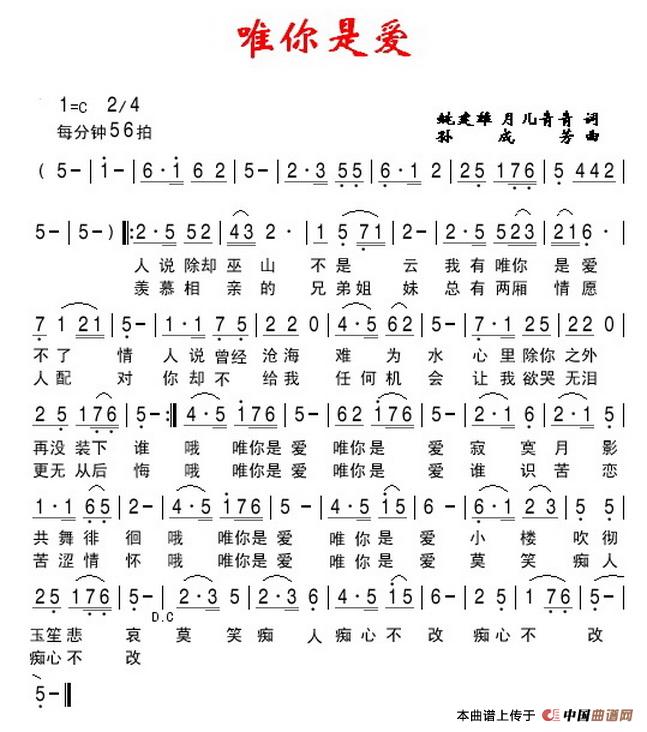 唯你是爱
1=C 2/4
每分钟56拍
姚建雄 月儿青青 词
孙成芳 曲
( 5- | i- | 6·i 62 | 5- | 2·3 55 | 6·1 2 | 25 176 | 5 442 |
5- | 5- ) |: 2·5 52 | 43 2· | 1 5 71 | 2- | 2·5 523 | 216· |
人说除却巫山 不是 云 我有唯你 是爱
羡慕相 亲的 兄弟姐 妹 总有两厢 情愿
7 1 21 | 5- | 1·1 75 | 220 | 4·5 62 | 5- | 7·1 25 | 220 |
不了 情 人说曾经 沧海 难 为 水 心里除你之外
人配 对 你却不 给我 任何机 会 让我欲哭无泪
2 5 176 | 5- :| 4·5 i76 | 5- | 62 i76 | 5- | 2·1 6 | 2·1 5 |
再没装下 谁 哦 唯你是 爱 唯你是 爱 寂 寞月 影
更无从后 悔 哦 唯你是 爱 唯你是 爱 谁 识苦 恋
1·1 65 | 2- | 4·5 i76 | 5- | 4·5 i5 | 6- | 6·1 23 |
共舞徘 徊 哦 唯你是 爱 唯你是 爱 小 楼 吹彻
苦涩情 怀 哦 唯你是 爱 唯你是 爱 莫 笑 痴人
25 176 | 5- | 2·3 5 | 2·3 6 | 4·5 i5 | 6- | 25 176 | 5- |
D.C
玉笙悲 哀 莫 笑 痴 人 痴心不 改 痴心不 改
痴心不 改
5- ‖
本曲谱上传于 中国曲谱网